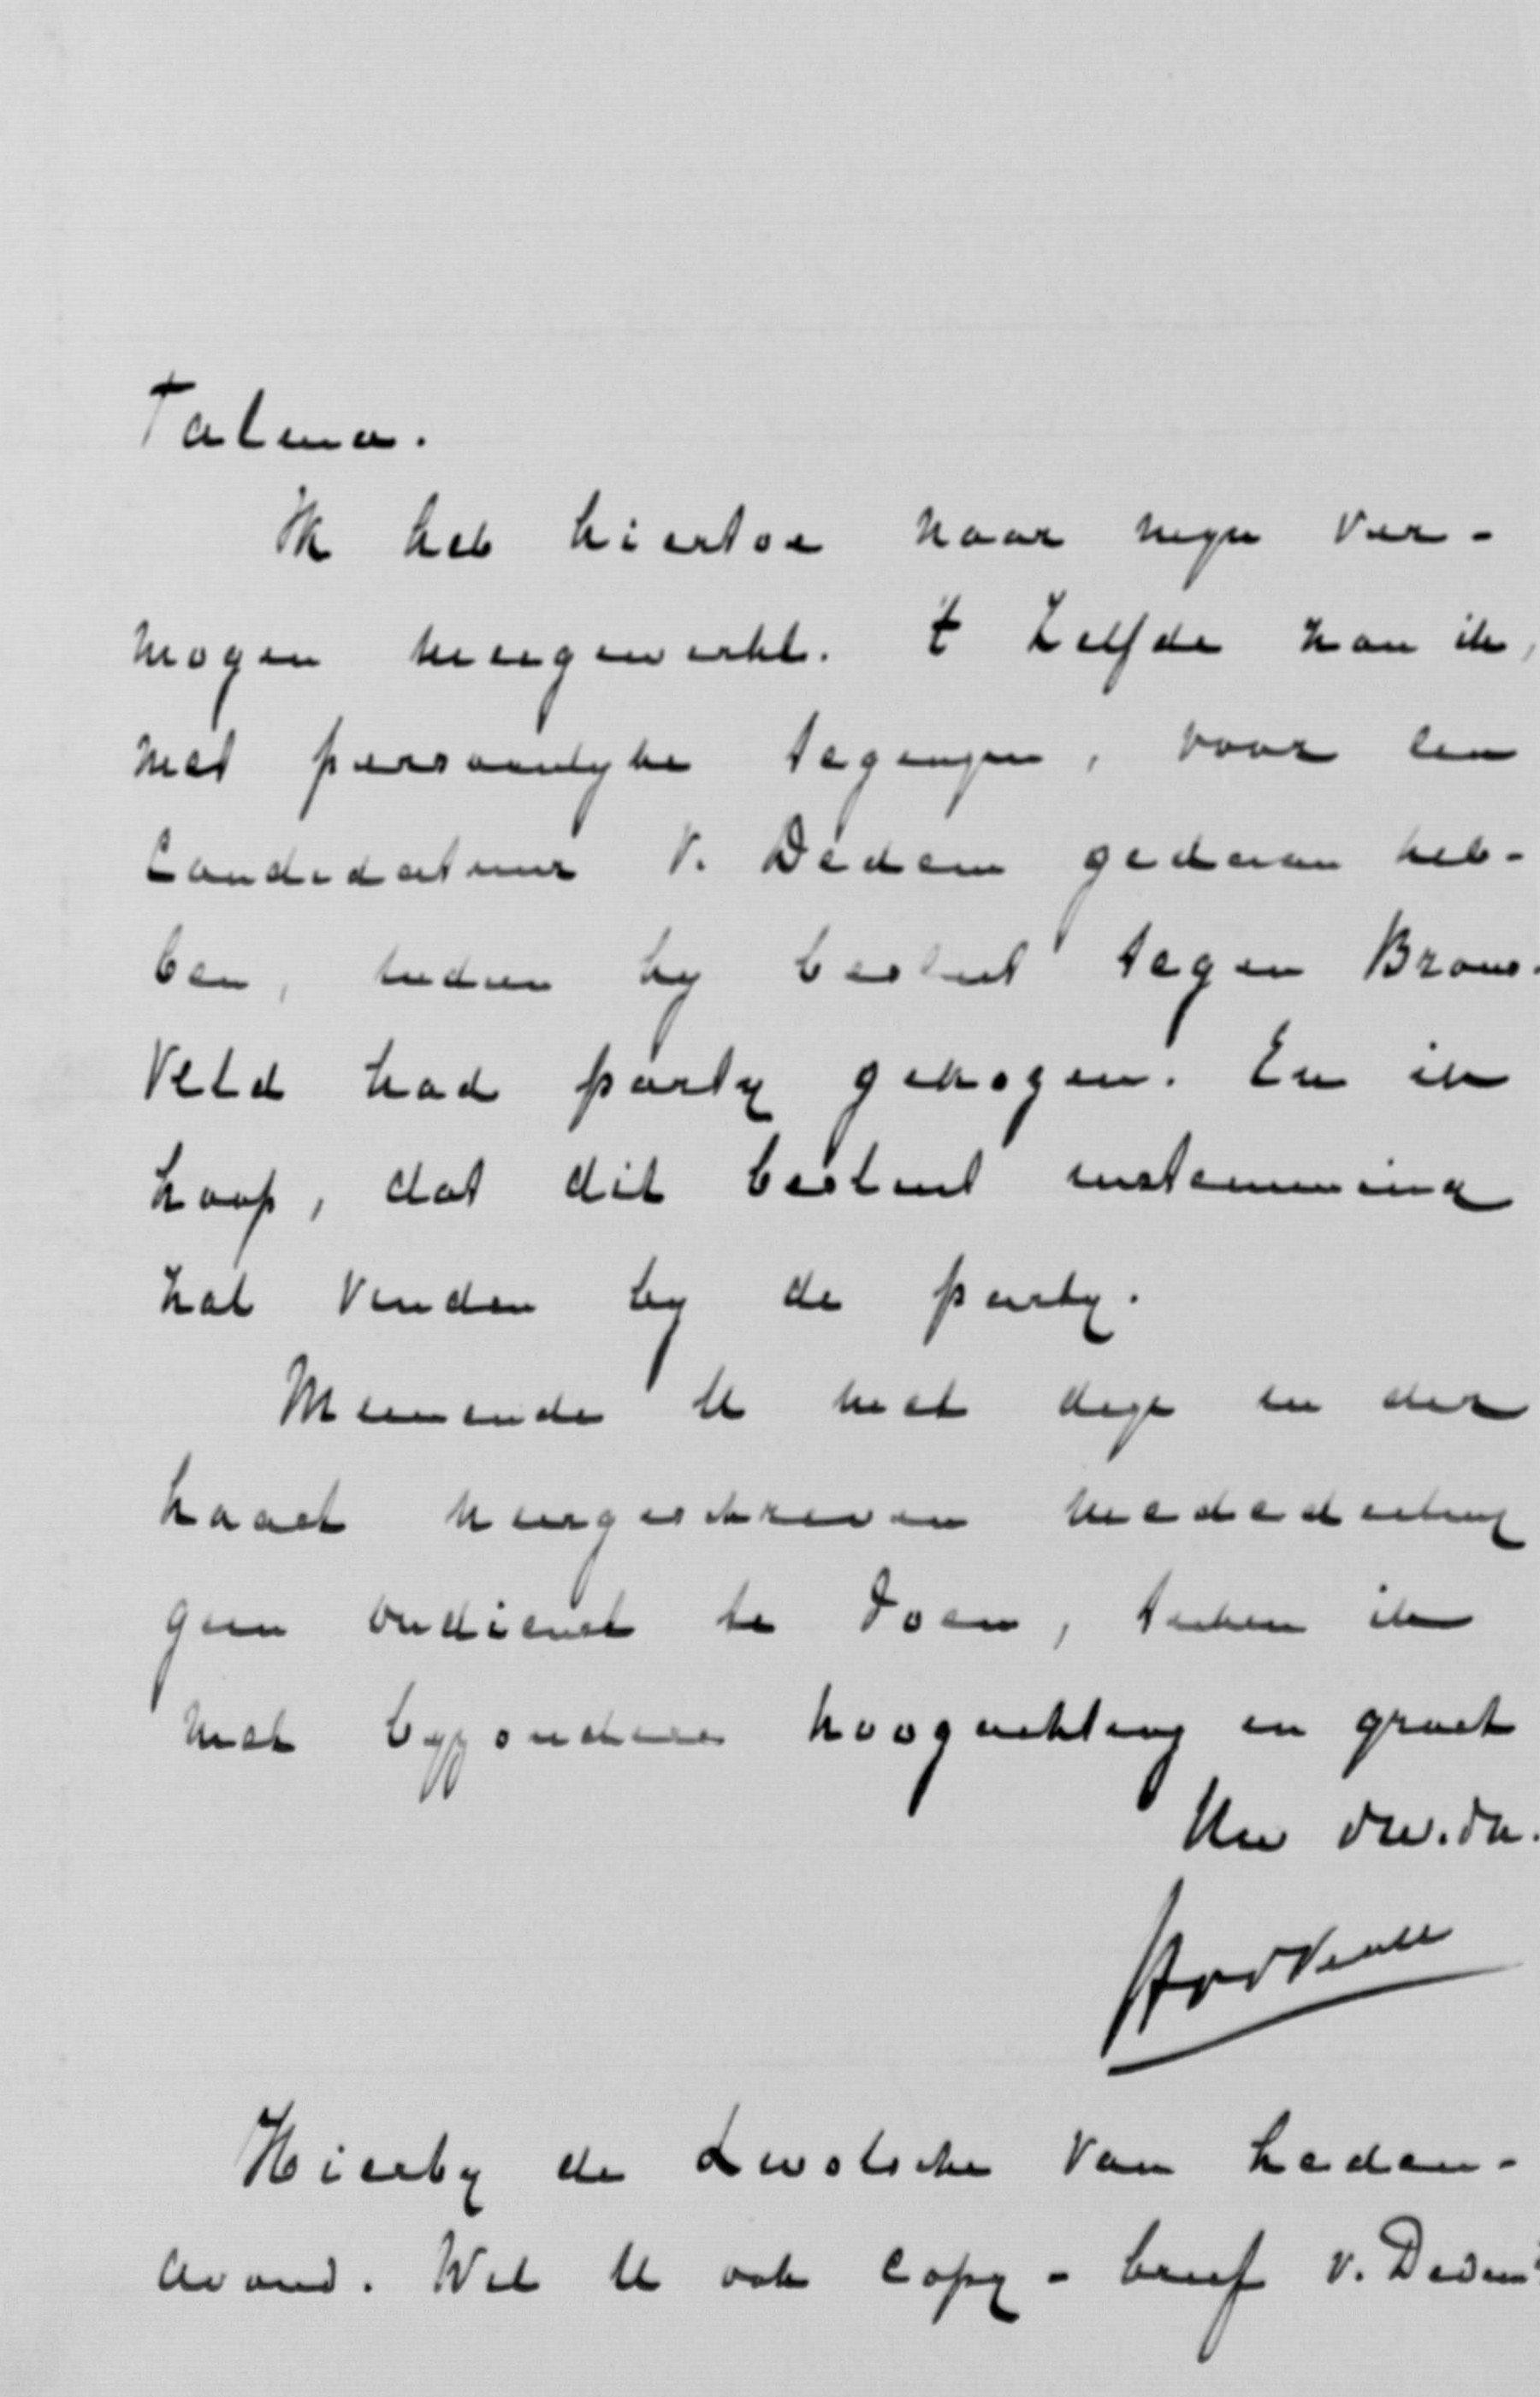 Talma.
Ik heb hiertoe naar mijn ver-
mogen meegewerkt. 't Zelfde zou ik,
met persoonlyke tegenzin, voor een
Candidatuur v. Dedem gedaan heb-
ben, indien hy beslist tegen Brons-
veld had party gekozen. En ik
hoop, dat dit besluit instemming
zal vinden by de party.
Meenende U met deze in der
haast neergeschreven mededeeling
geen ondienst te doen, teeken ik
met byzondere hoogachting en groet
Uw dw. dn.
Hierby de Zwolsche van heden-
avond. Wil U ook copy-brief v. Dedem